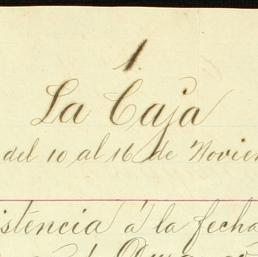 1.
La Caja
del 10 al 16 de Novie
istencia á la fecha